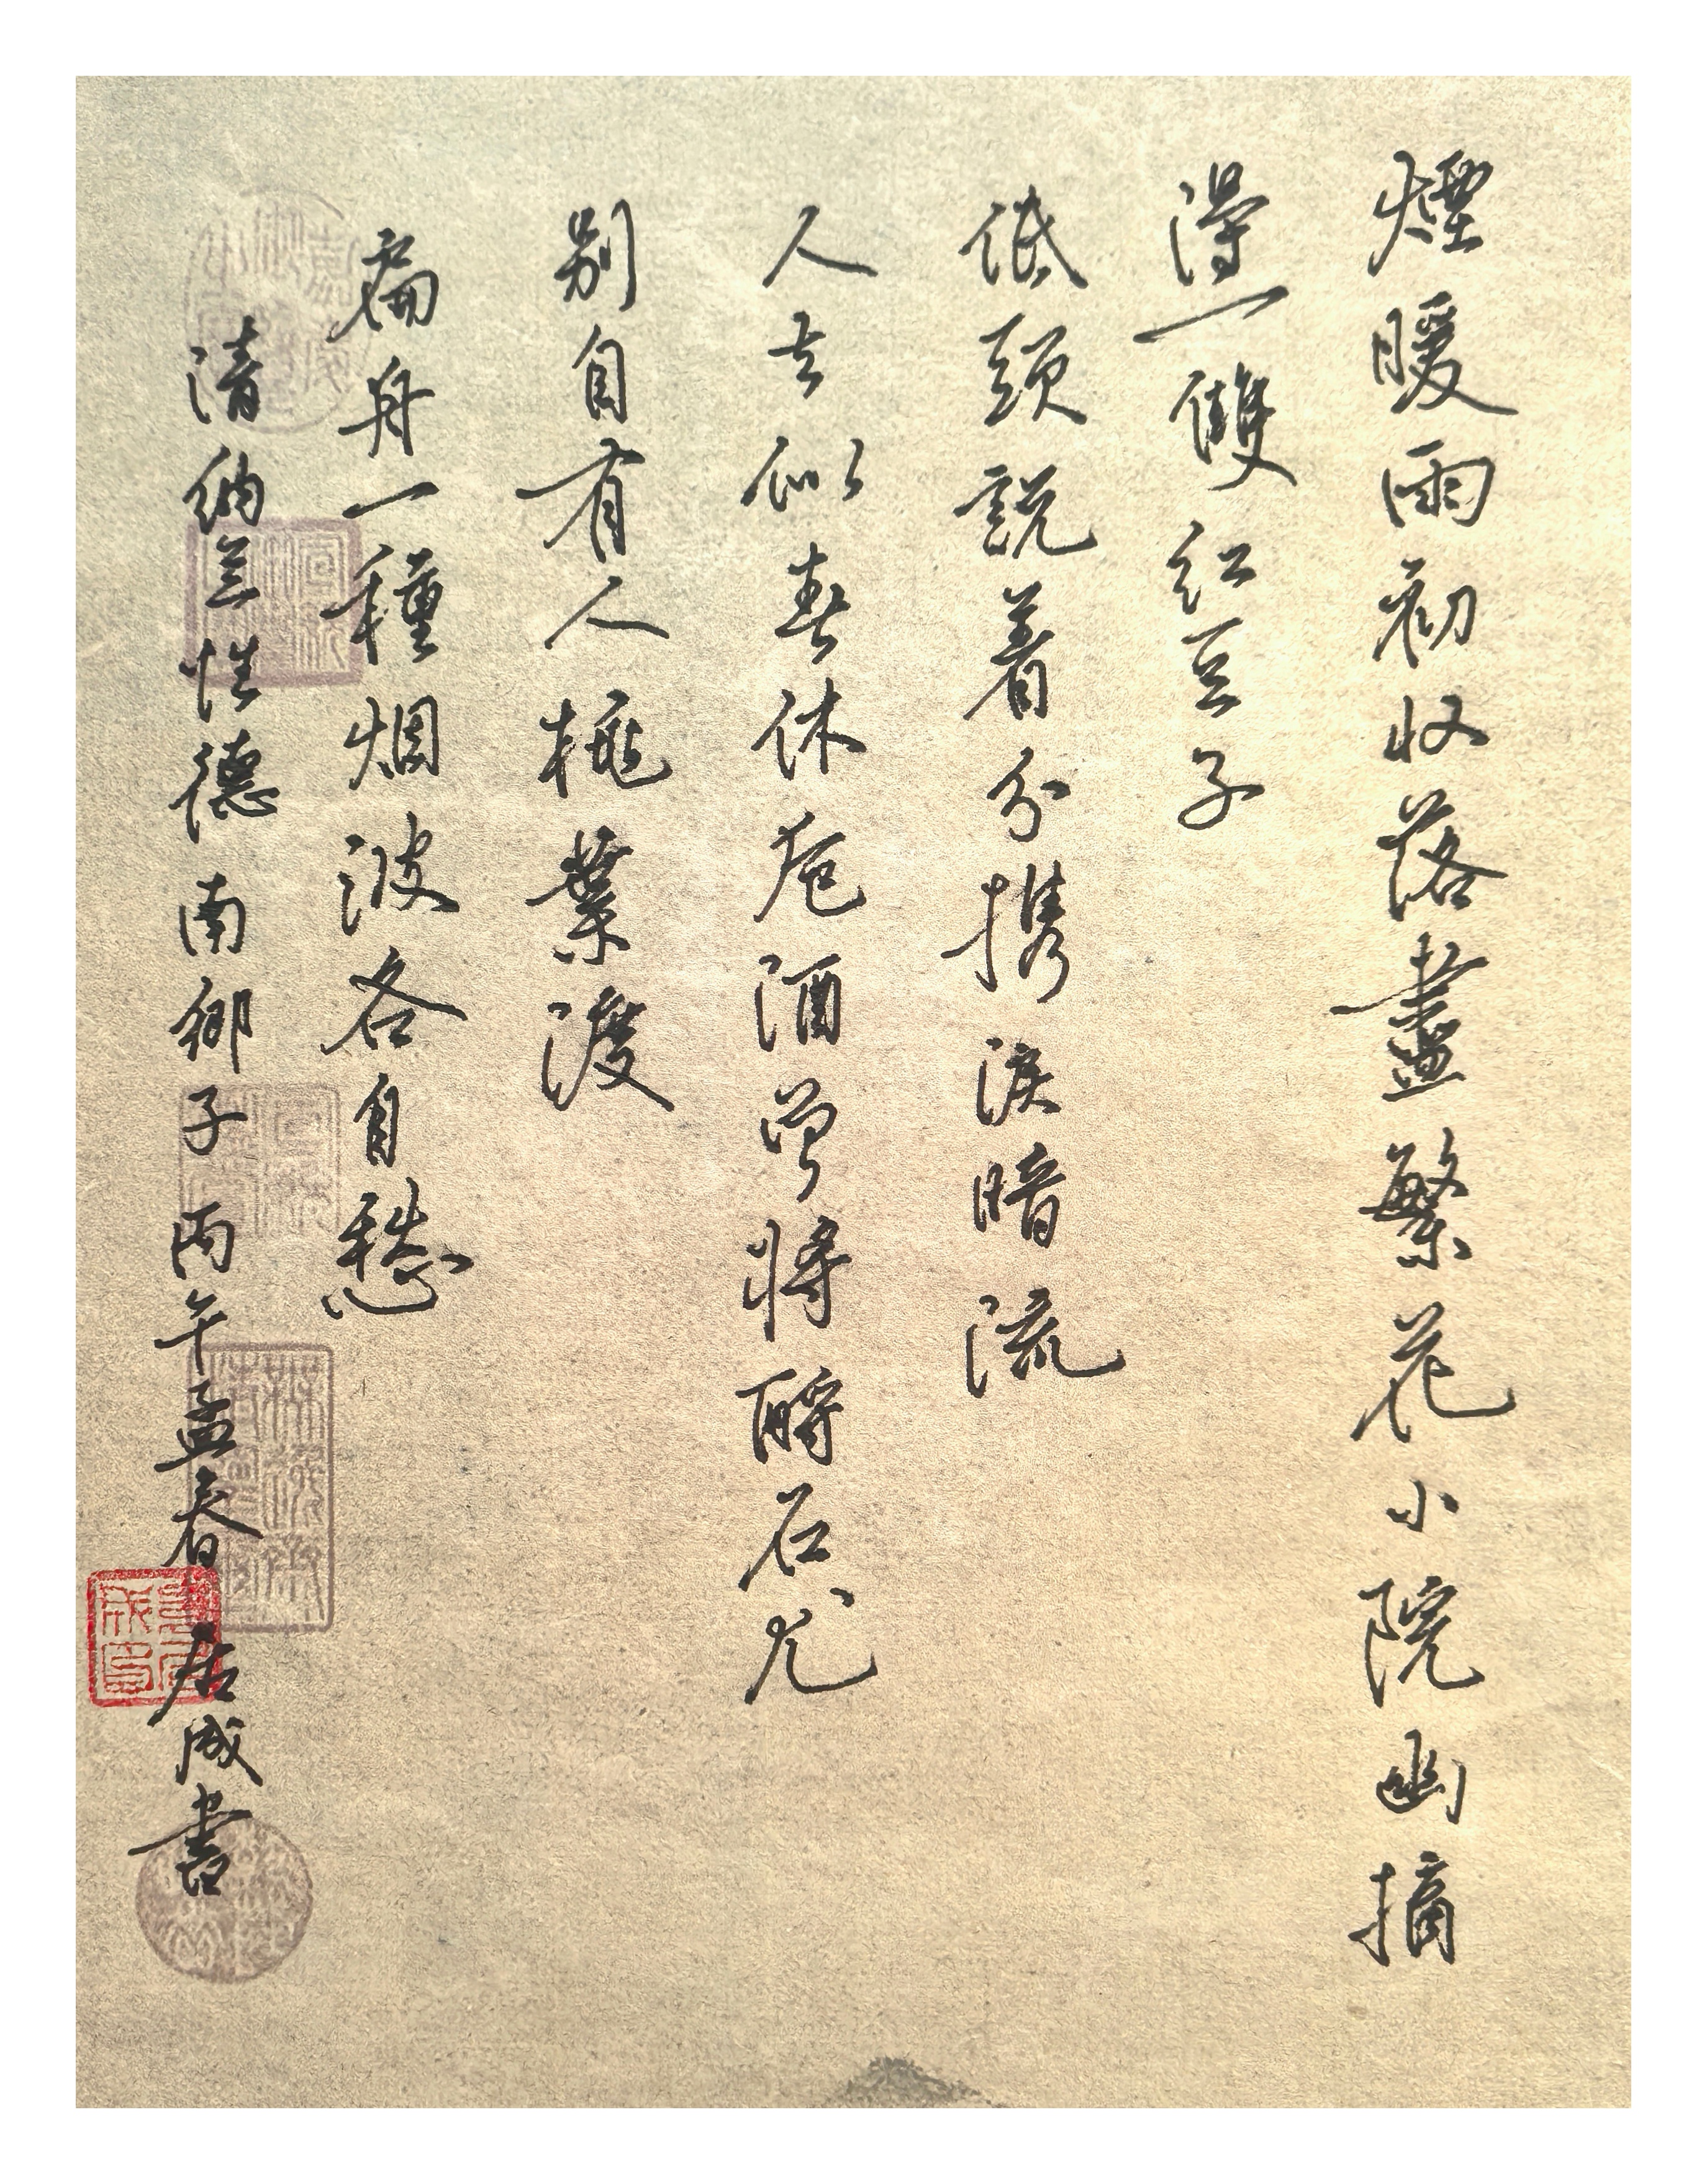 煙暖雨初收落盡繁花小院幽摘
得一雙紅豆子
低頭説着分携淚暗流
人去似春休卮酒曾將酹石尤
別自有人桃葉渡
扁舟一種烟波各自愁
清納兰性德南鄉子丙午孟春居成書